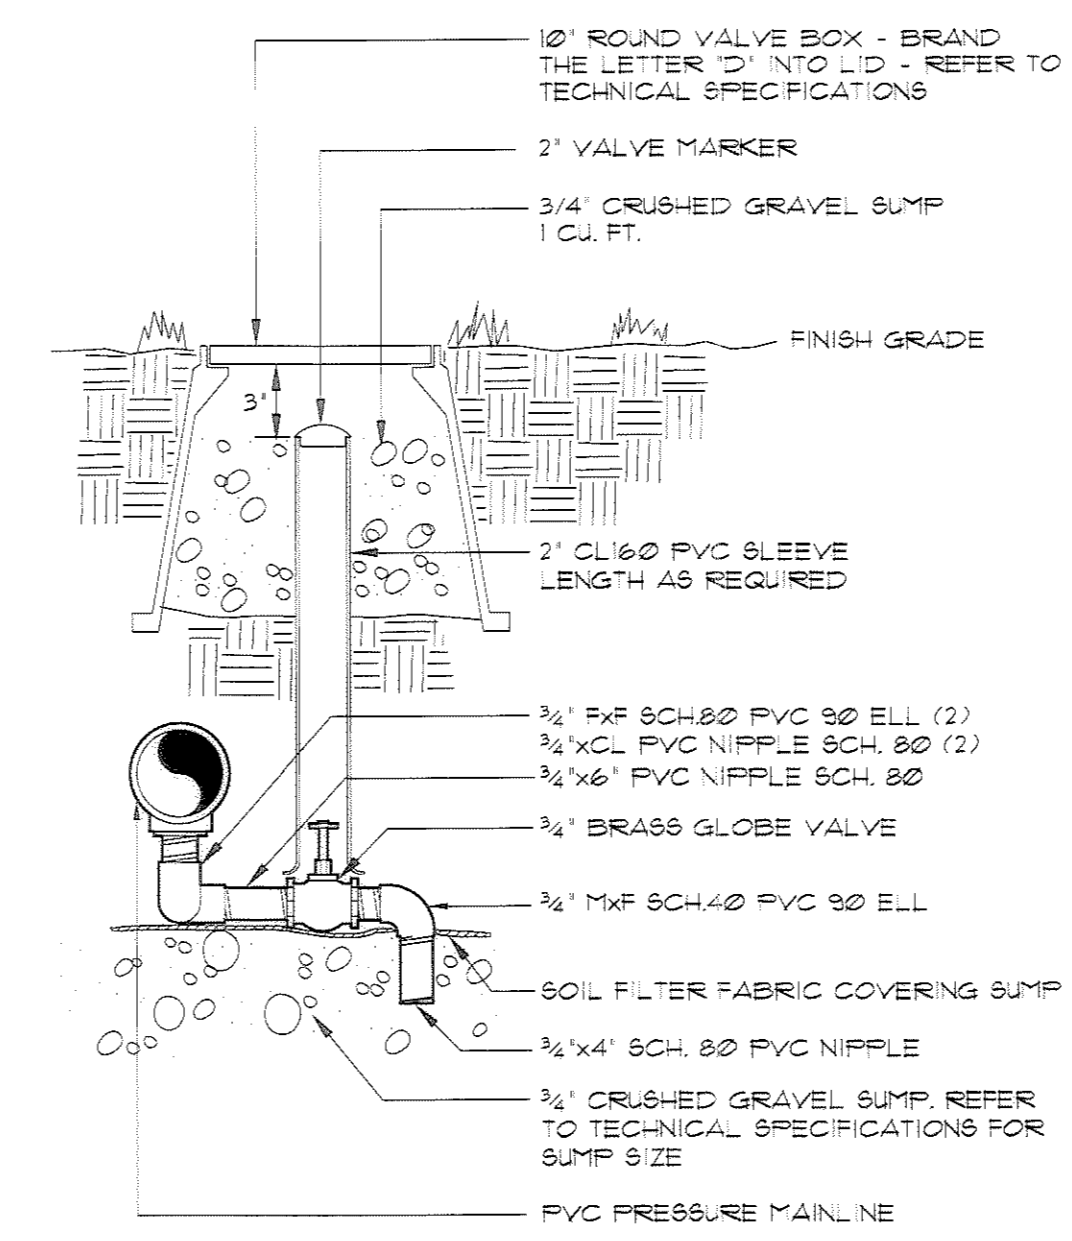 10" ROUND VALVE BOX - BRAND
THE LETTER "D" INTO LID - REFER TO
TECHNICAL SPECIFICATIONS
2" VALVE MARKER
3/4" CRUSHED GRAVEL SUMP
1 CU. FT.
FINISH GRADE
3"
2" CL160 PVC SLEEVE
LENGTH AS REQUIRED
3/4" FxF SCH.80 PVC 90 ELL (2)
3/4"xCL PVC NIPPLE SCH. 80 (2)
3/4"x6" PVC NIPPLE SCH. 80
3/4" BRASS GLOBE VALVE
3/4" MxF SCH.40 PVC 90 ELL
SOIL FILTER FABRIC COVERING SUMP
3/4"x4" SCH. 80 PVC NIPPLE
3/4" CRUSHED GRAVEL SUMP. REFER
TO TECHNICAL SPECIFICATIONS FOR
SUMP SIZE
PVC PRESSURE MAINLINE